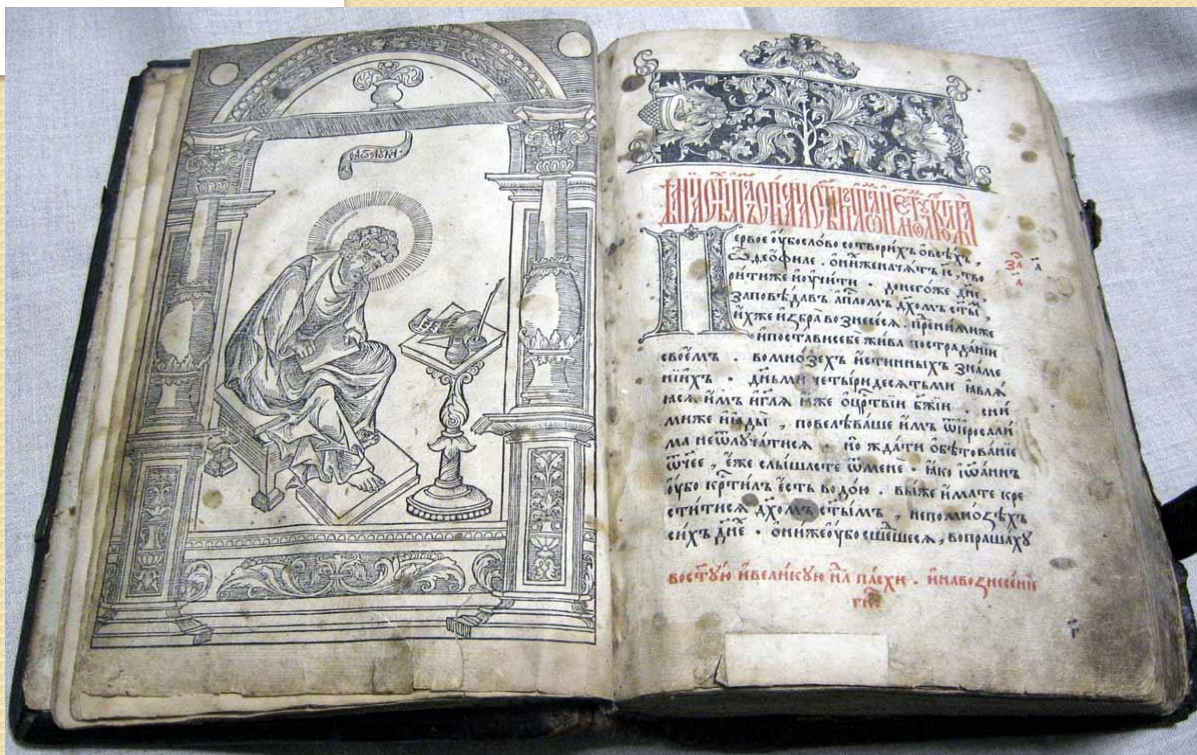 Первое ᲂу҆́бо сло́во сотвори́хъ ѡ҆ всѣ́хъ,
ѽ Ѳео́филе . ѡ҆ ни́хже нача́тъ і҆с҃, тво
ри́ти же и҆ ᲂу҆чи́ти . до него́же дн҃е,
заповѣ́давъ а҆пⷭ҇ломъ дх҃омъ ст҃ы́м,
и҆́хже и҆збра̀ вознесе́сѧ . пред ни́миже
и҆ поста́ви себѐ жи́ва по страда́нїи
свое́мъ . во мно́зехъ и҆́стинныхъ зна́ме
нїихъ . дн҃ьми четы́ридесѧтьми ꙗ҆влѧ́
ѧсѧ и҆̀мъ и҆ гл҃ѧ ꙗ҆́же ѡ҆ црⷭ҇твїи бж҃їи . с ни́
миже и҆ ꙗ҆ды̀, повелѣва́ше и҆̀мъ ѿ і҆ерⷭ҇али
ма не ѿлꙋча́тисѧ . но жда́ти ѻ҆бѣтова́нїе
ѻ҆́ч҃ее, є҆́же слы́шасте ѿ менѐ . ꙗ҆́ко і҆ѡа́ннъ
ᲂу҆́бо крⷭ҇ти́лъ є҆́сть водо́ю . вы́ же и҆́мате кре
сти́тисѧ дх҃омъ ст҃ы́мъ, не по мно́ѕѣхъ
си́хъ дн҃е . ѻ҆ни́же ᲂу҆́бо сше́дшесѧ, вопроша́хꙋ
во ст҃ꙋ́ю и҆ вели́кꙋю нⷣ҇лю па́схи . и҆ на вознесе́нїе
гнⷭ҇е